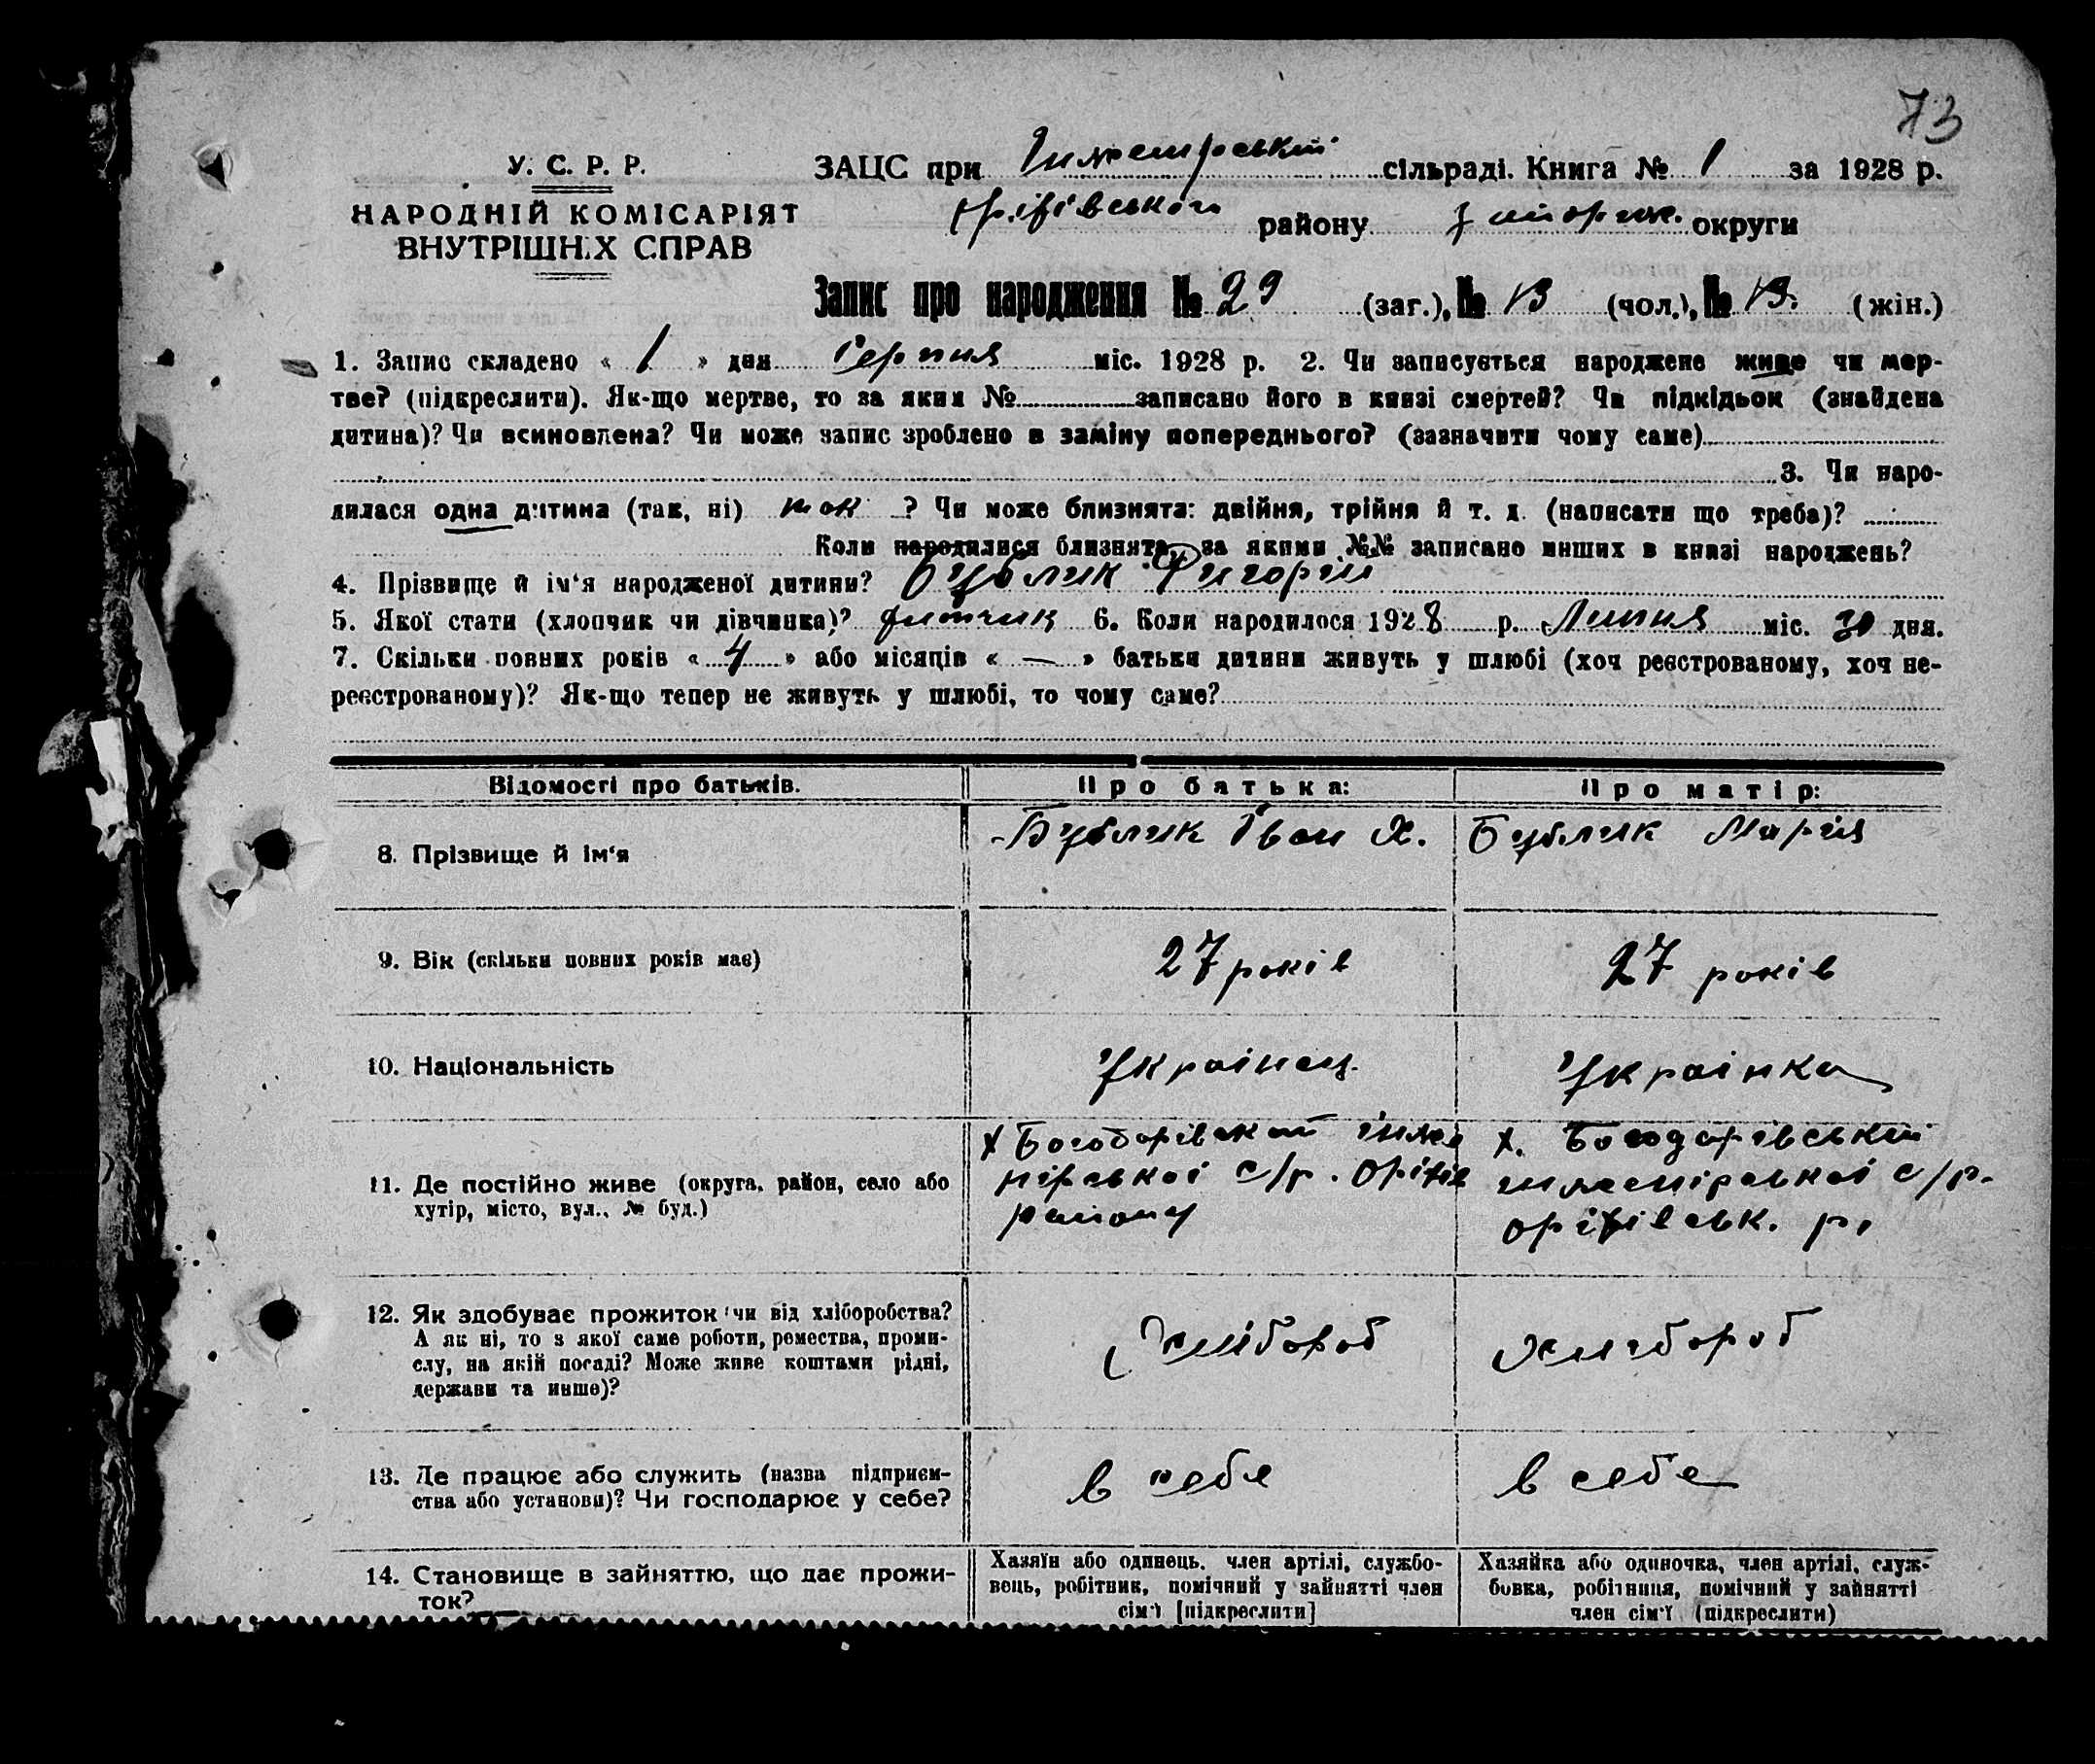 73
У. С. Р. Р.
НАРОДНІЙ КОМІСАРІЯТ
ВНУТРІШНІХ СПРАВ
ЗАЦС при сільраді. Книга № 1 за 1928 р.
району округи
Запис про народження № 29 (заг.), № 13 (чол.), № 13. (жін.)
1. Запис складено « 1 » дня Серпня міс. 1928 р. 2. Чи записується народжене живе чи мер-
тве? (підкреслити). Як-що мертве, то за яким № записано його в книзі смертей? Чи підкідьок (знайдена
дитина)? Чи всиновлена? Чи може запис зроблено в заміну попереднього? (зазначити чому саме)
3. Чи наро-
дилася одна дитина (так, ні) так ? Чи може близнята: двійня, трійня й т. д. (написати що треба)?
Коли народилися близнята, за якими №№ записано инших в книзі народжень?
4. Прізвище й ім‘я народженої дитини? Бублик Григорій
5. Якої стати (хлопчик чи дівчинка)? 6. Коли народилося 1928 р. Липня міс. 30 дня.
7. Скільки повних років « 4 » або місяців « — » батьки дитини живуть у шлюбі (хоч реєстрованому, хоч не-
реєстрованому)? Як-що тепер не живуть у шлюбі, то чому саме?
Відомості про батьків. Про батька: Про матір:
8. Прізвище й ім‘я Бублик Іван Х. Бублик Марія
9. Вік (скільки повних років має) 27 років 27 років
10. Національність Українец. Українка
11. Де постійно живе (округа, район, село або
хутір, місто, вул., № буд.)
х Богодарівский с/р. Оріхів
району
х. Богодарівський с/р.
оріхівськ. р.
12. Як здобуває прожиток чи від хліборобства?
А як ні, то з якої саме роботи, ремества, проми-
слу, на якій посаді? Може живе коштами рідні,
держави та инше)?
Хлібороб хлибороб
13. Де працює або служить (назва підприєм-
ства або установи)? Чи господарює у себе?
в себе в себе
14. Становище в зайняттю, що дає прожи-
ток?
Хазяїн або одинець, член артілі, службо-
вець, робітник, помічний у зайнятті член
сім‘ї [підкреслити]
Хазяйка або одиночка, член артілі, служ-
бовка, робітниця, помічний у зайнятті
член сім‘ї (підкреслити)